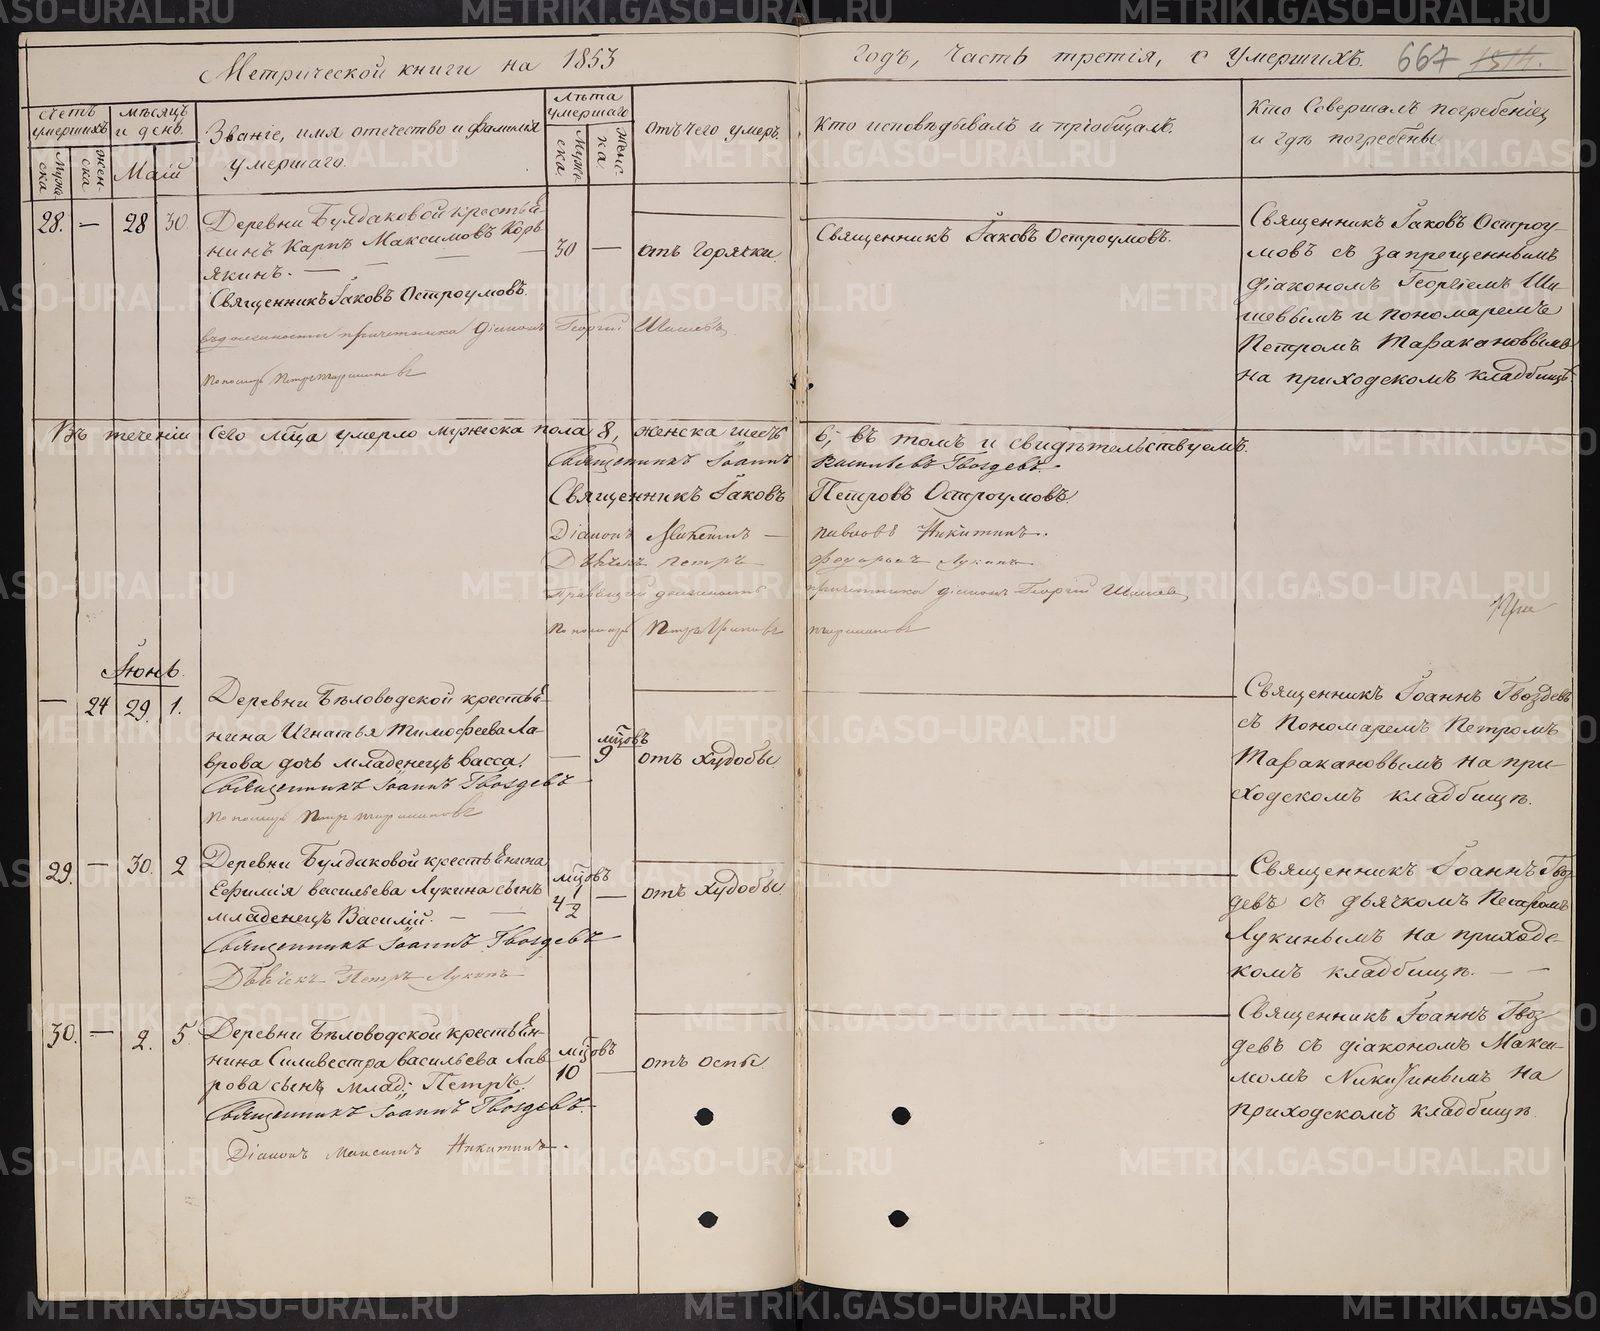 Метрической книги на 1853
годъ, Часть третія, о Умершихъ. 667 1314.
счетъ умершихъ
мужеска
женска
мѣсяцъ и день.
Маій
Званіе, имя отечество и фамилія
умершаго.
лѣта умершаго
Мужеска
Женска
отъ чего умеръ.
Кто исповѣдывалъ и пріобщалъ.
Кто Совершалъ погребеніе,
и гдѣ погребены
28. — 28 30.
Деревни Булдаковой крестья-
нинъ Карпъ Максимовъ Коръ-
якинъ. —
Священникъ Іаковъ Остроумовъ.
въ должности причетника діаконъ Георгій Шишевъ,
Пономарь Петръ Таракановъ
30 —
отъ горячки
Священникъ Іаковъ Остроумовъ.
Священникъ Іаковъ Остроу-
мовъ съ запрещеннымъ
діакономъ Георгіемъ Ши-
шевымъ и пономаремъ
Петромъ Таракановымъ
на приходскомъ кладбищѣ.
Въ теченіи сего мѣсяца умерло мужеска пола 8, женска шесть 6; въ томъ и свидѣтельствуемъ.
Священникъ Іоаннъ Васильевъ Гвоздевъ.
Священникъ Іаковъ Петровъ Остроумовъ
Діаконъ Максимъ — Павловъ Никитинъ.
Дьячекъ Петръ Лукинъ
Правящій должность причетника діаконъ Георгій Шишевъ,
Пономарь Петръ Таракановъ
Іюнь.
— 24 29 1.
Деревни Бѣловодской крестья-
нина Игнатья Тимофеева Ла-
врова дочь младенецъ Васса.
Священникъ Іоаннъ Гвоздевъ
Пономарь Петръ Таракановъ
— мцовъ 9
отъ худобы
Священникъ Іоаннъ Гвоздевъ
съ Пономаремъ Петромъ
Таракановымъ на при-
ходскомъ кладбищѣ.
29. — 30. 2
Деревни Булдаковой крестьянина
Ефимія Васильева Лукина сынъ
младенецъ Василій. —
Священникъ Іоаннъ Гвоздевъ
Дьячекъ Петръ Лукинъ
мцовъ 4 1/2 —
отъ худобы
Священникъ Іоаннъ Гвоз-
девъ съ дьячкомъ Петромъ
Лукинымъ на приходс-
комъ кладбищѣ. — —
30. — 2. 5
Деревни Бѣловодской крестьян-
нина Силивестра Васильева Лав-
рова сынъ млад: Петръ.
Священникъ Іоаннъ Гвоздевъ.
Діаконъ Максимъ Никитинъ.
мцовъ 10 —
отъ оспы
Священникъ Іоаннъ Гвоз
девъ съ діакономъ Макси-
момъ Никитинымъ на
приходскомъ кладбищѣ.
METRIKI.GASO-URAL.RU